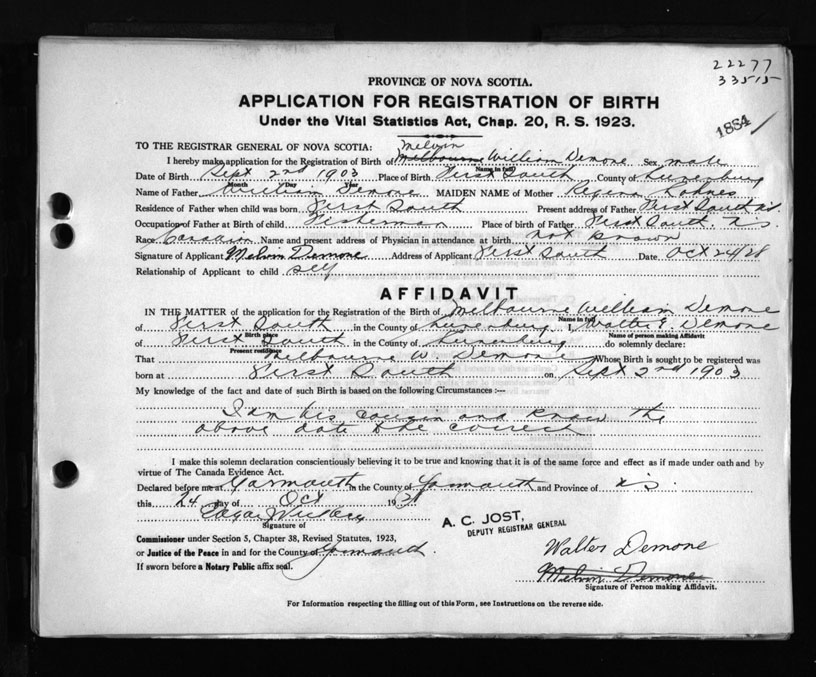 22277
33515
1884
PROVINCE OF NOVA SCOTIA.
APPLICATION FOR REGISTRATION OF BIRTH
Under the Vital Statistics Act, Chap. 20, R. S. 1923.
TO THE REGISTRAR GENERAL OF NOVA SCOTIA: Melvin
I hereby make application for the Registration of Birth of Melbourne William Demone Sex male
Name in full
Date of Birth Sept 2nd 1903 Place of Birth First South County of Lunenburg
Month Day Year
Name of Father William Demone MAIDEN NAME of Mother Regina
Residence of Father when child was born First South Present address of Father First South
Occupation of Father at Birth of child Fisherman Place of birth of Father First South N S
Race Name and present address of Physician in attendance at birth not known
Signature of Applicant Melvin Demone Address of Applicant First South Date Oct 24/28
Relationship of Applicant to child self
AFFIDAVIT
IN THE MATTER of the application for the Registration of the Birth of Melbourne William Demone
Name in full
of First South in the County of Lunenburg I, Walter E. Demone
Birth place Name of person making Affidavit
of First South in the County of Lunenburg do solemnly declare:
Present residence
That Melbourne W. Demone Whose Birth is sought to be registered was
born at First South on Sept 2nd 1903
My knowledge of the fact and date of such Birth is based on the following Circumstances :—
I am his cousin and know the
above date to be correct
I make this solemn declaration conscientiously believing it to be true and knowing that it is of the same force and effect as if made under oath and by
virtue of The Canada Evidence Act.
Declared before me at Yarmouth in the County of Yarmouth and Province of N S
this 24 day of Oct 1928
Edgar
Signature of
A. C. JOST,
DEPUTY REGISTRAR GENERAL
Commissioner under Section 5, Chapter 38, Revised Statutes, 1923,
or Justice of the Peace in and for the County of Yarmouth.
If sworn before a Notary Public affix seal.
Walter Demone
Melvin Demone
Signature of Person making Affidavit.
For Information respecting the filling out of this Form, see Instructions on the reverse side.